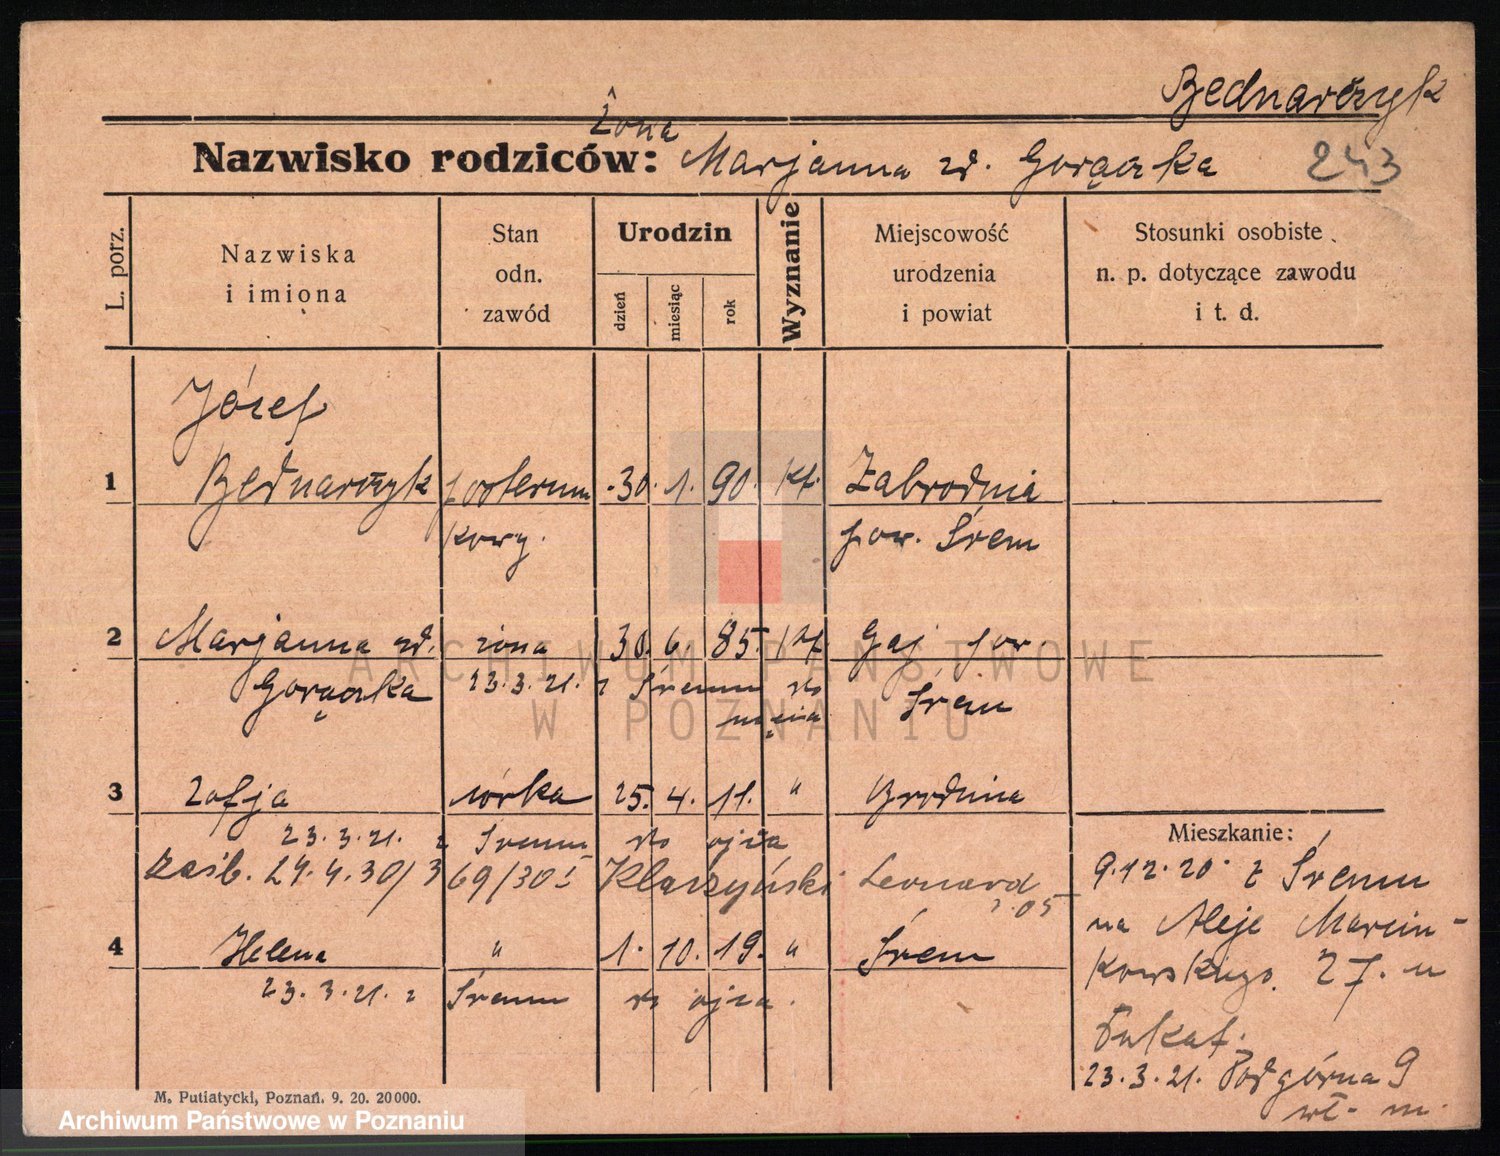 Bednarczyk
żona
Nazwisko rodziców: Marjanna zd. Gorączka 243
L. porz.
Nazwiska
i imiona
Stan
odn.
zawód
Urodzin
dzień
miesiąc
rok
Wyznanie
Miejscowość
urodzenia
i powiat
Stosunki osobiste
n. p. dotyczące zawodu
i t. d.
Józef
1 Bednarczyk posterun 30. 1. 90. kt. Zabrodnia
kowy. pow. Śrem
2 Marjanna zd. żona 30. 6. 85. kt Gaj pow
Gorączka 23.3.21. z Śremu do Śrem
męża
3 Zofja córka 25. 4. 11. " Brodnica
23.3.21. z Śremu do ojca
zaśb. 24.4.30/3 69/30 Klaczyński Leonard
05
4 Helena " 1. 10. 19. " Śrem
23.3.21. z Śremu do ojca.
Mieszkanie:
9.12.20 z Śremu
na Aleje Marcin-
kowskiego. 27. u
23.3.21. Podgórna 9
wł. m.
M. Putiatycki, Poznań. 9. 20. 20 000.
ARCHIWUM PAŃSTWOWE
W POZNANIU
Archiwum Państwowe w Poznaniu